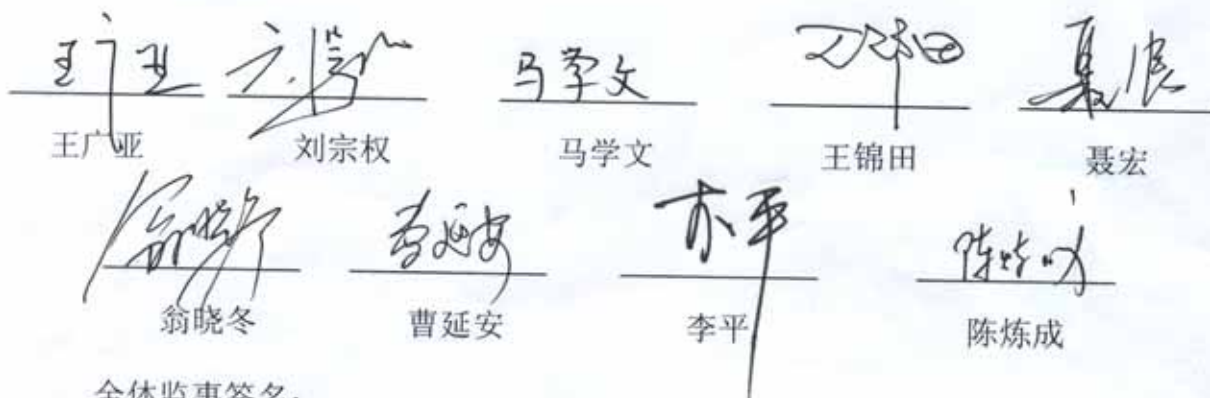 王广亚 刘宗权 马学文 王锦田 聂宏
马学文
王广亚 刘宗权 马学文 王锦田 聂宏
翁晓冬 曹延安 李平 陈炼成
翁晓冬 曹延安 李平 陈炼成
全体监事签名: